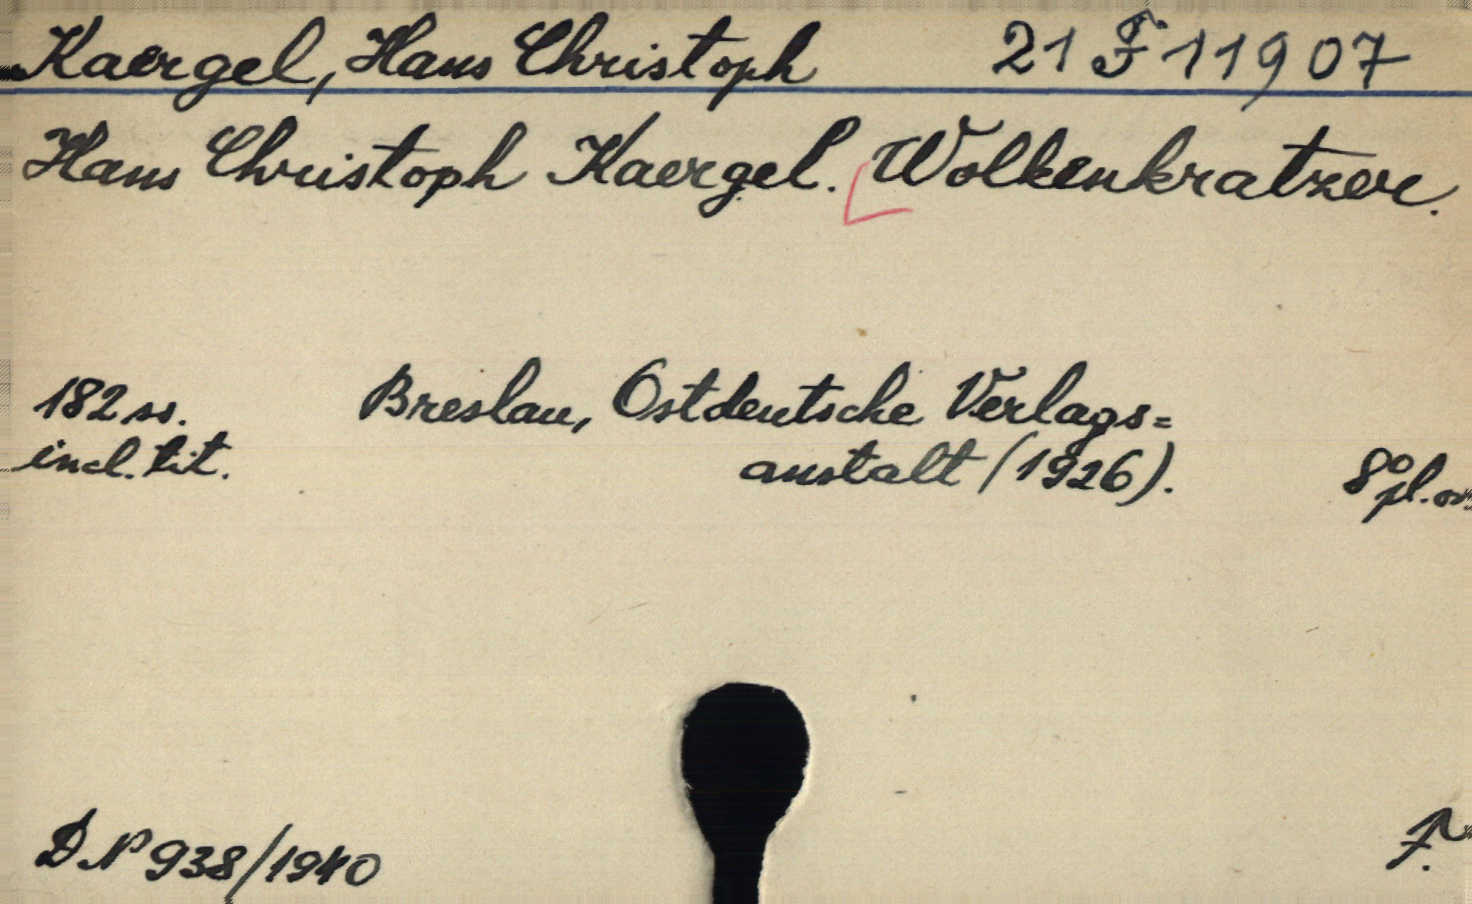 Kaergel, Hans Christoph 21 F 11907
Hans Christoph Kaergel. Wolkenkratzer.
182 ss. Breslau, Ostdeutsche Verlags=
incl. tit. anstalt (1926). 8° pl.
D.N° 938/1940 F.